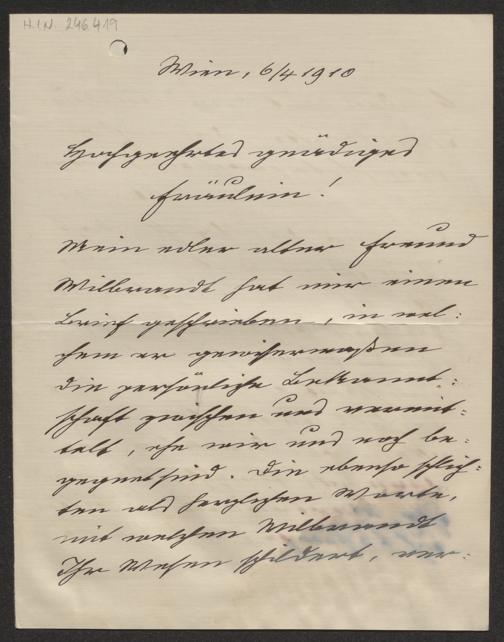 H.I.N. 246.419
Wien, 6/4 1910
Hochgeehrtes gnädiges
Fräulein!
Mein edler alter Freund
Wilbrandt hat mir einen
Brief geschrieben, in wel:
chem er gewissermaßen
die persönliche Bekannt:
schaft zwischen uns vermit:
telt, ehe wir uns noch be:
gegnet sind. Die ebenso schlich:
ten als herzlichen Worte,
mit welchen Wilbrandt
Ihr Wesen schildert, ver: